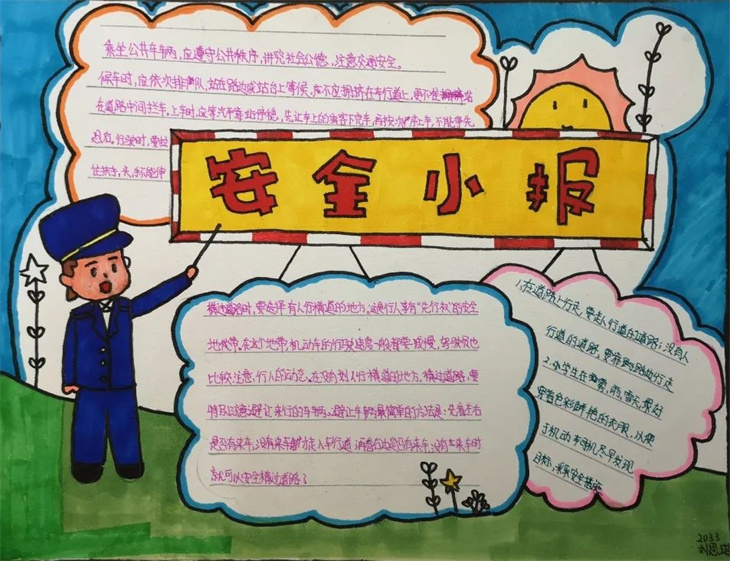 乘坐公共车车辆，应遵守公共秩序，讲究社会公德，注意交通安全。
候车时，应依次排队，站在路边或站台上等候，不应拥挤在车行道上，更不准站
在道路中间拦车。上车时，应等汽车靠站停稳，先让车上的乘客下完车，再按次序上车，不能争先
恐后。行驶时，要拉
住扶手，头，手不能伸
安全小报
横过道路时，要选择有人行横道的地方。这是行人享有“先行权”的安全
地带。在这个地带，机动车的行驶速度一般都要减慢，驾驶员也
比较注意，行人的动态。在没有划人行横道的地方，横过道路，要
特别注意避让来行的车辆。避让车辆最简单的方法是：先看左右
是否有来车，没有来车才走入车行道，再看右边是否有来车，没有来车时
就可以安全横过道路了
1.在道路上行走，要走人行道的道路；没有人
行道的道路，要靠路边行走
2.小学生在雾，雨，雪天最好
穿着色彩鲜艳的衣服，以便
于机动车司机尽早发现
目标，
2033